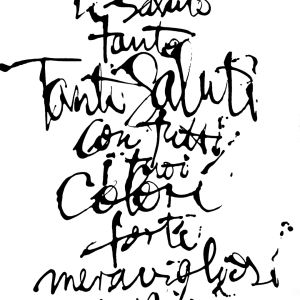 Ti Saluto
tanto
Tanti Saluti
con tutti
i tuoi
Colori
forti
meravigliosi